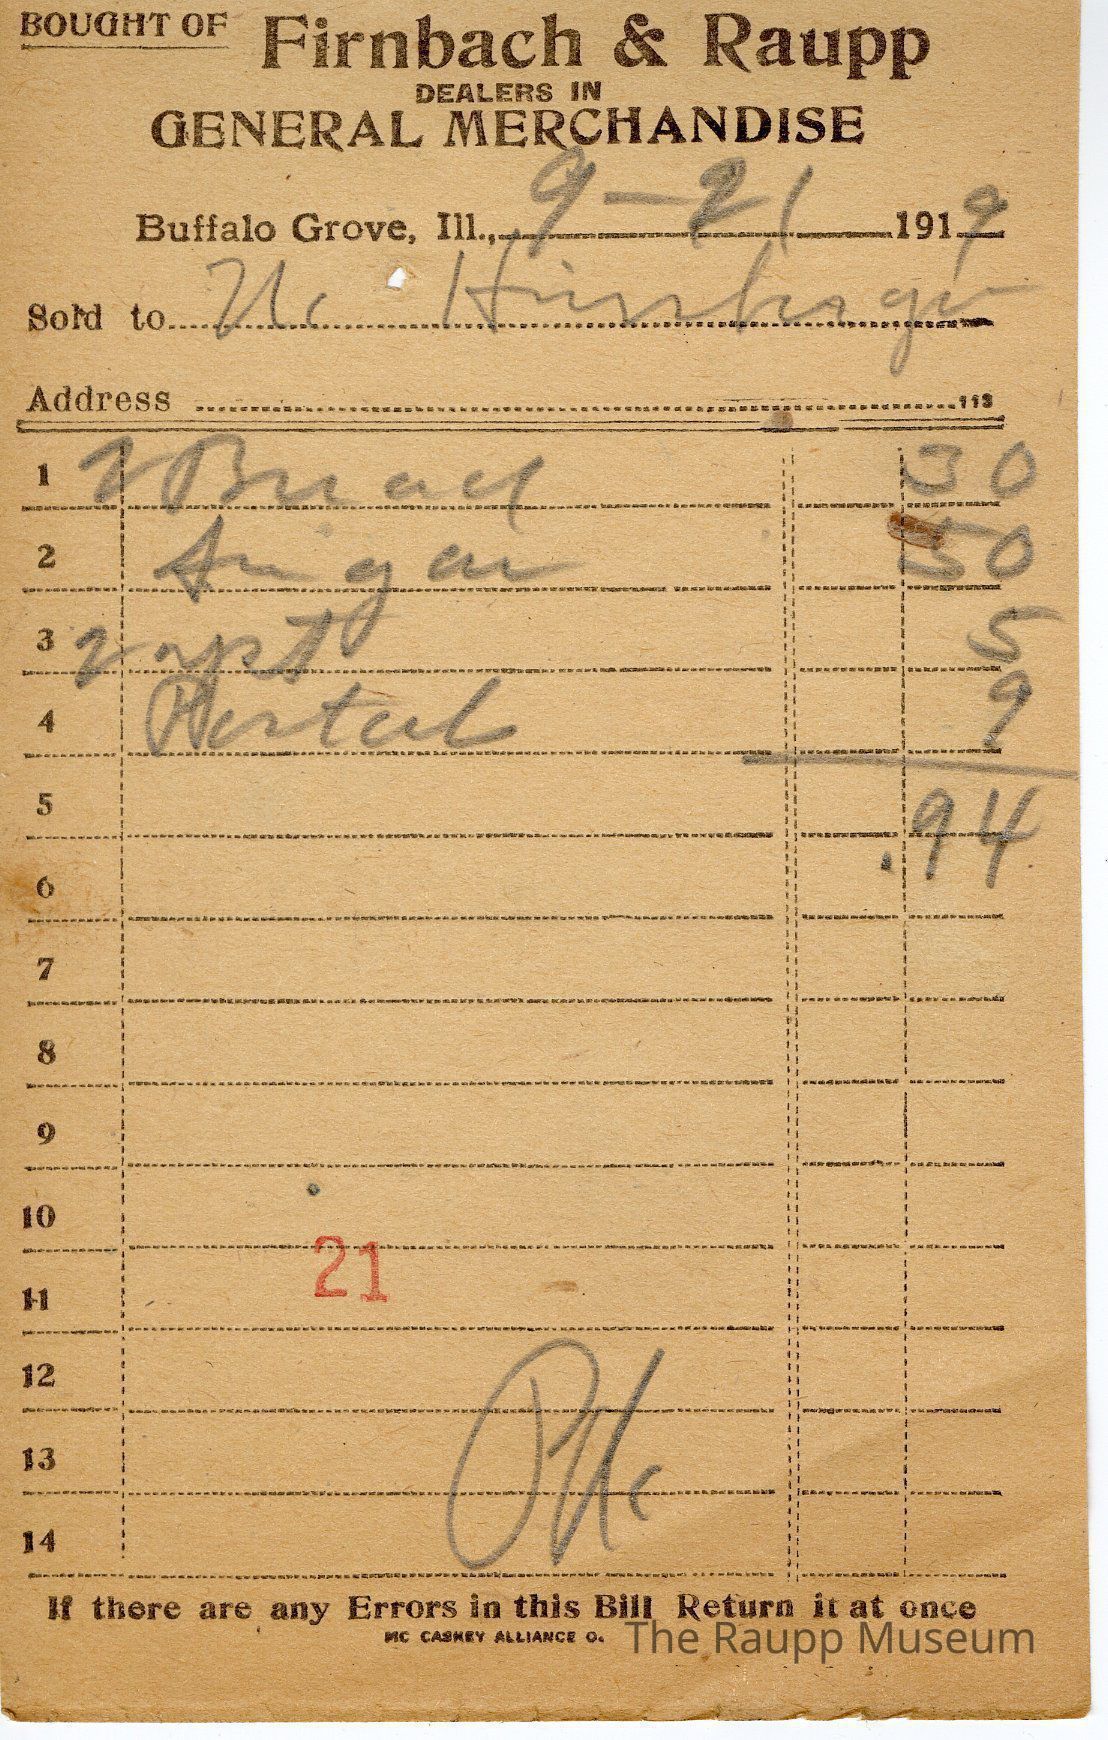 BOUGHT OF Firnbach & Raupp
DEALERS IN
GENERAL MERCHANDISE
Buffalo Grove, Ill., 9-21 1919
Sold to
Address 113
1 2 Bread 30
2 Sugar 50
3 2 5
4 9
5 .94
6
7
8
9
10
21
11
12
13
14
If there are any Errors in this Bill Return it at once
MC CASKEY ALLIANCE O.
The Raupp Museum